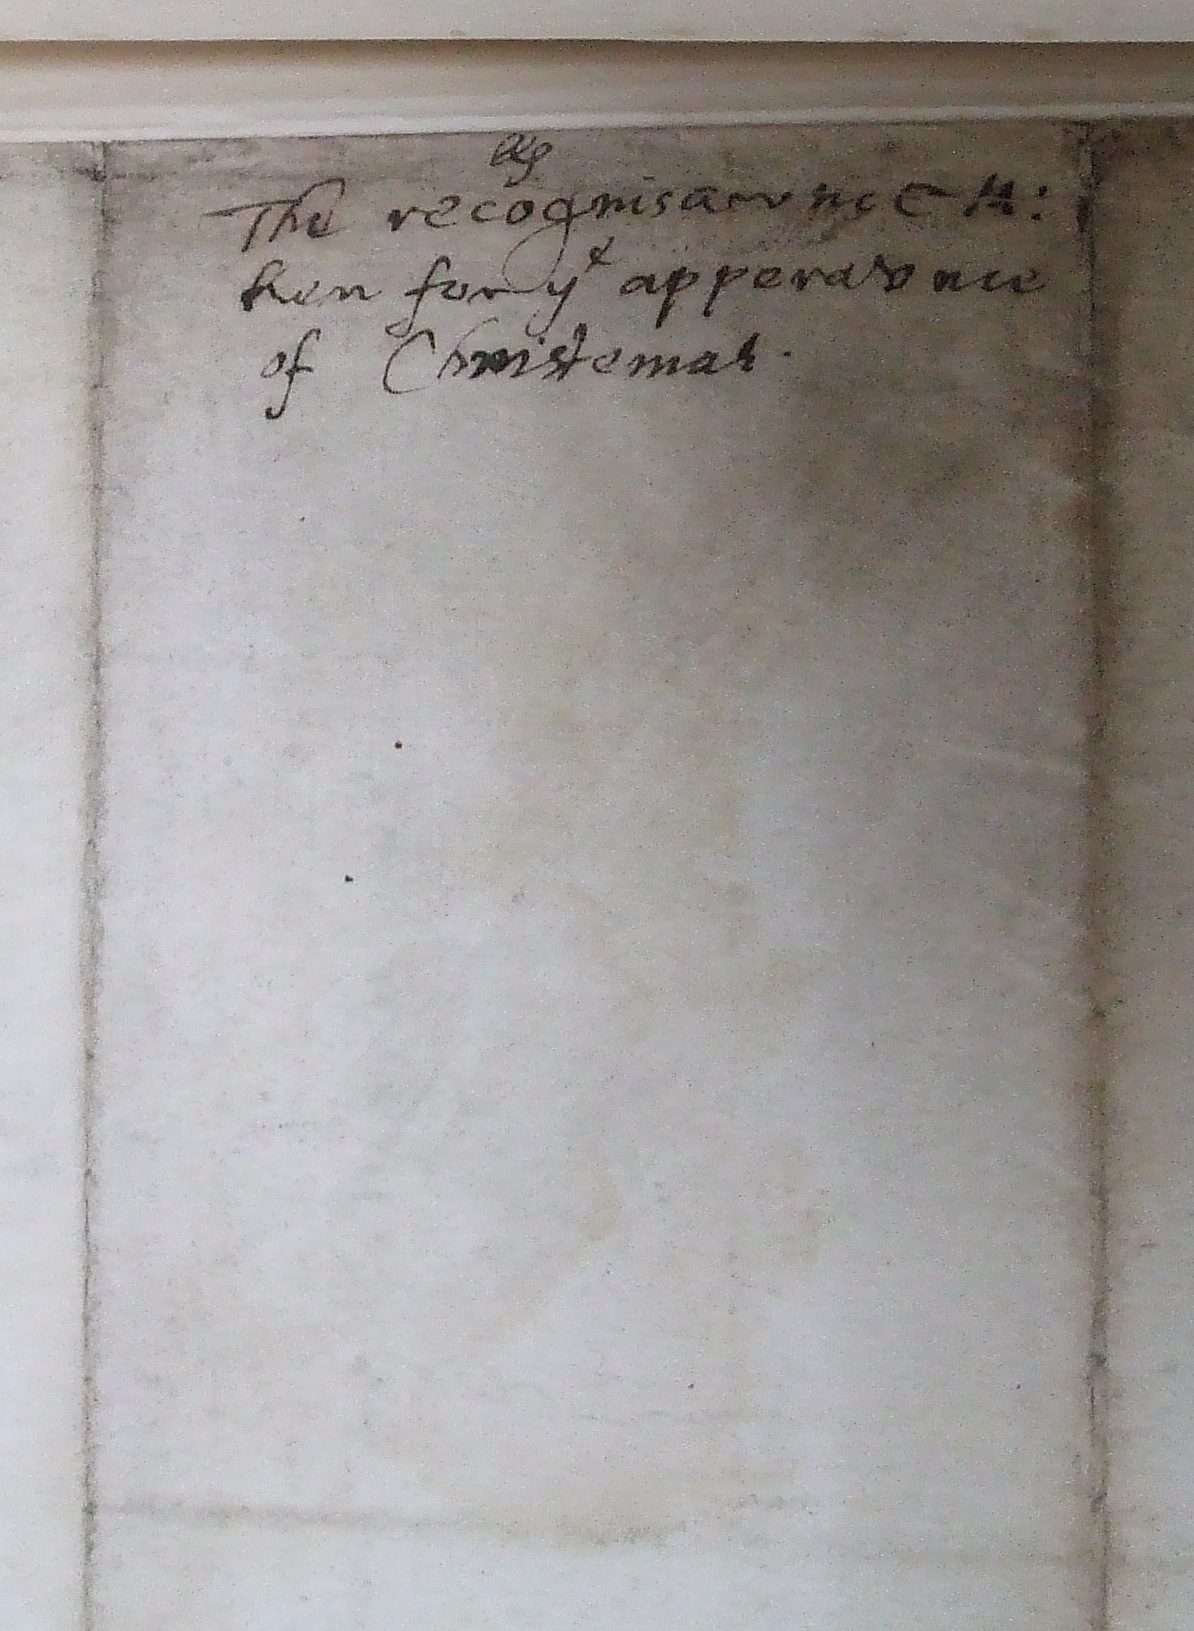 The recognisaunce ta:
ken for yͤ apperaunce
of Christemas.